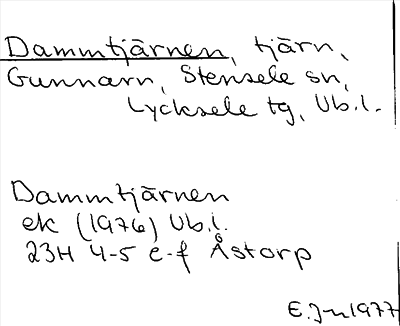 Dammtjärnen, tjärn,
Gunnarn, Stensele sn,
Lycksele tg, Vb. l.
Dammtjärnen
ek (1976) Vb. l.
23H 4-5 e-f Åstorp
E. J-n 1977